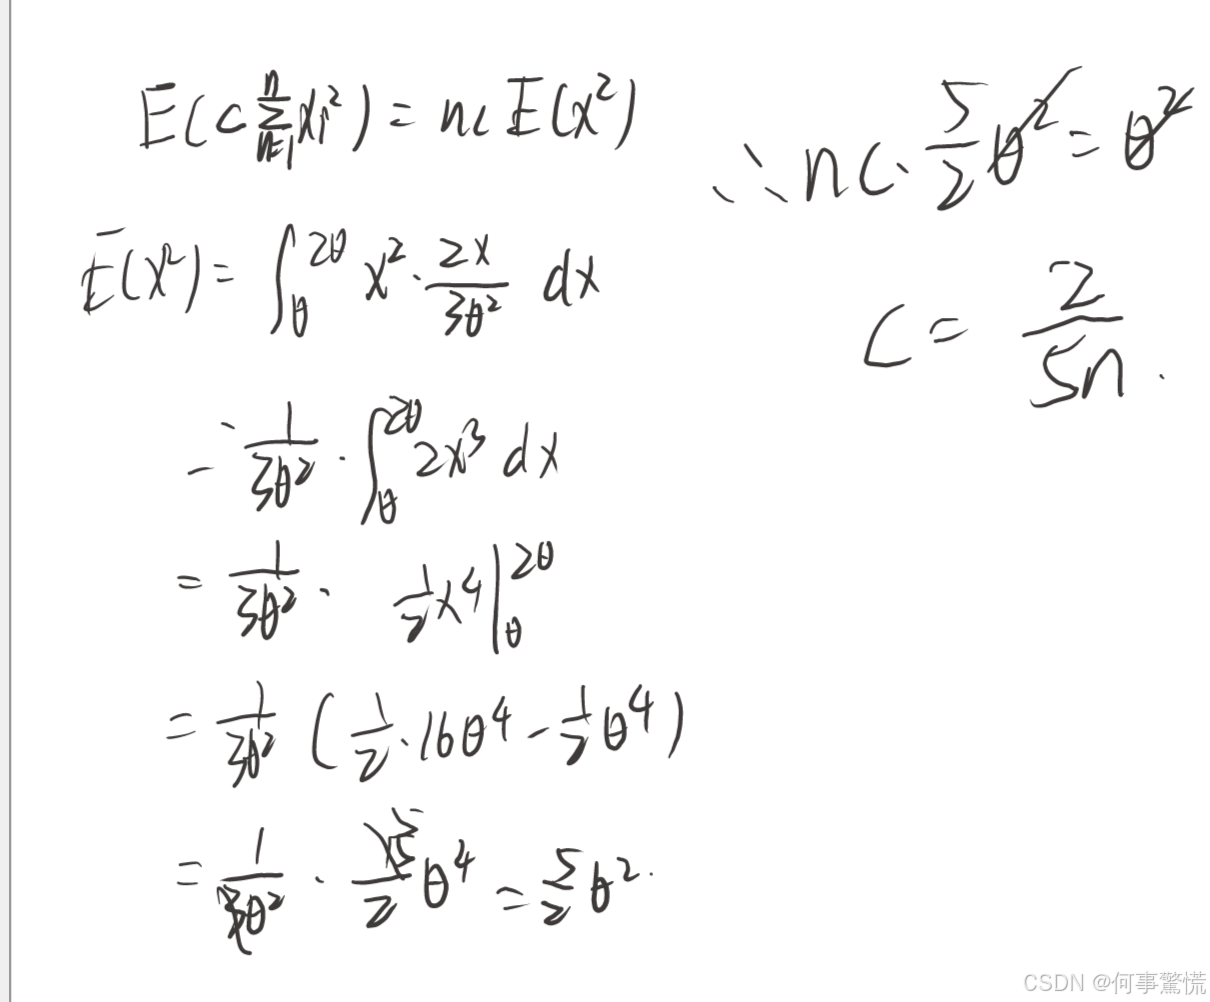 E(c∑_{n=1}^{n} x_i²) = nc E(x²)
E(x²) = ∫_θ^{2θ} x² · \frac{2x}{3θ²} dx
= \frac{1}{3θ²} · ∫_θ^{2θ} 2x³ dx
= \frac{1}{3θ²} · \frac{1}{2}x⁴ |_θ^{2θ}
= \frac{1}{3θ²} (\frac{1}{2} · 16θ⁴ - \frac{1}{2}θ⁴)
= \frac{1}{3θ²} · \frac{15}{2}θ⁴ = \frac{5}{2}θ².
∴ nc · \frac{5}{2}θ² = θ²
c = \frac{2}{5n}.
CSDN @何事驚慌